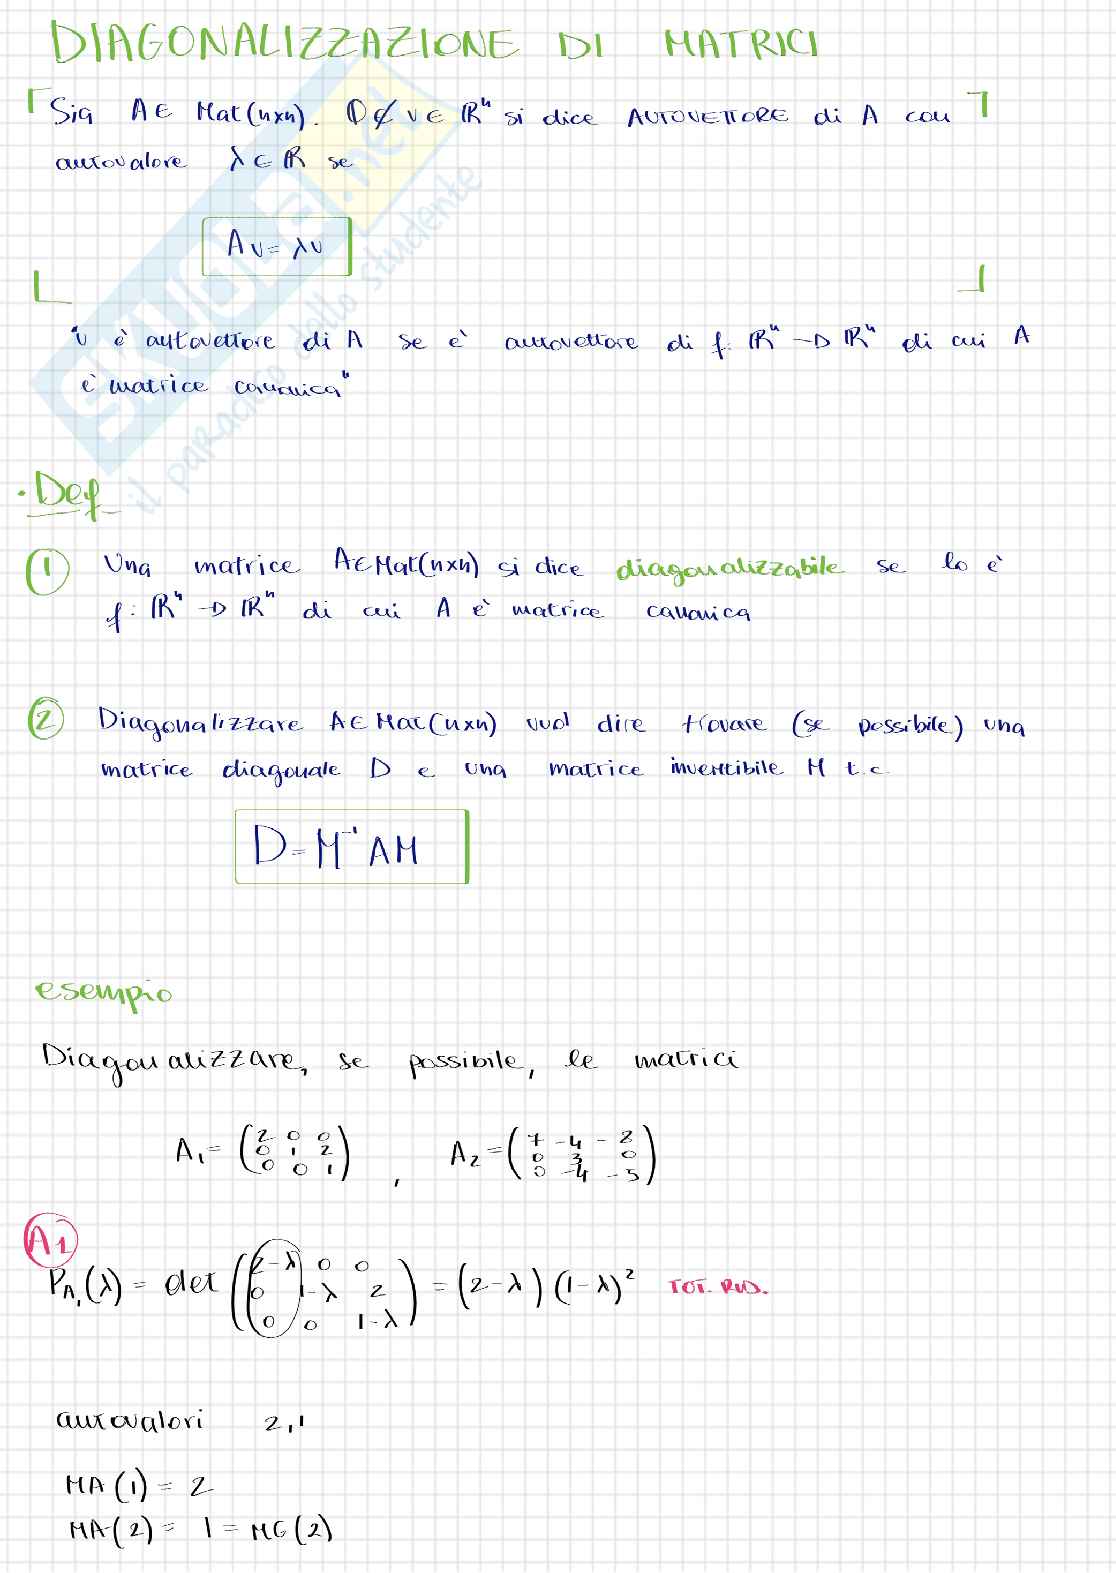 DIAGONALIZZAZIONE DI MATRICI
Sia A∈ Mat(nxn). 0≠ v∈ ℝⁿ si dice AUTOVETTORE di A con
autovalore λ∈ℝ se
Av=λv
"v è autovettore di A se è autovettore di f: ℝⁿ→ℝⁿ di cui A
è matrice canonica"
SKUOLA.net
il paradiso dello studente
·Def
① Una matrice A∈Mat(nxn) si dice diagonalizzabile se lo è
f: ℝⁿ→ℝⁿ di cui A è matrice canonica
② Diagonalizzare A∈Mat(nxn) vuol dire trovare (se possibile) una
matrice diagonale D e una matrice invertibile M t.c.
D=M⁻¹AM
esempio
Diagonalizzare, se possibile, le matrici
A₁= (2 0 0 / 0 1 2 / 0 0 1) , A₂= (7 -4 -8 / 0 3 0 / 0 -4 -5)
A1
P_A₁(λ) = det ((2-λ 0 0 / 0 1-λ 2 / 0 0 1-λ)) = (2-λ)(1-λ)² TOT. RID.
autovalori 2,1
MA(1)= 2
MA(2)= 1=MG(2)